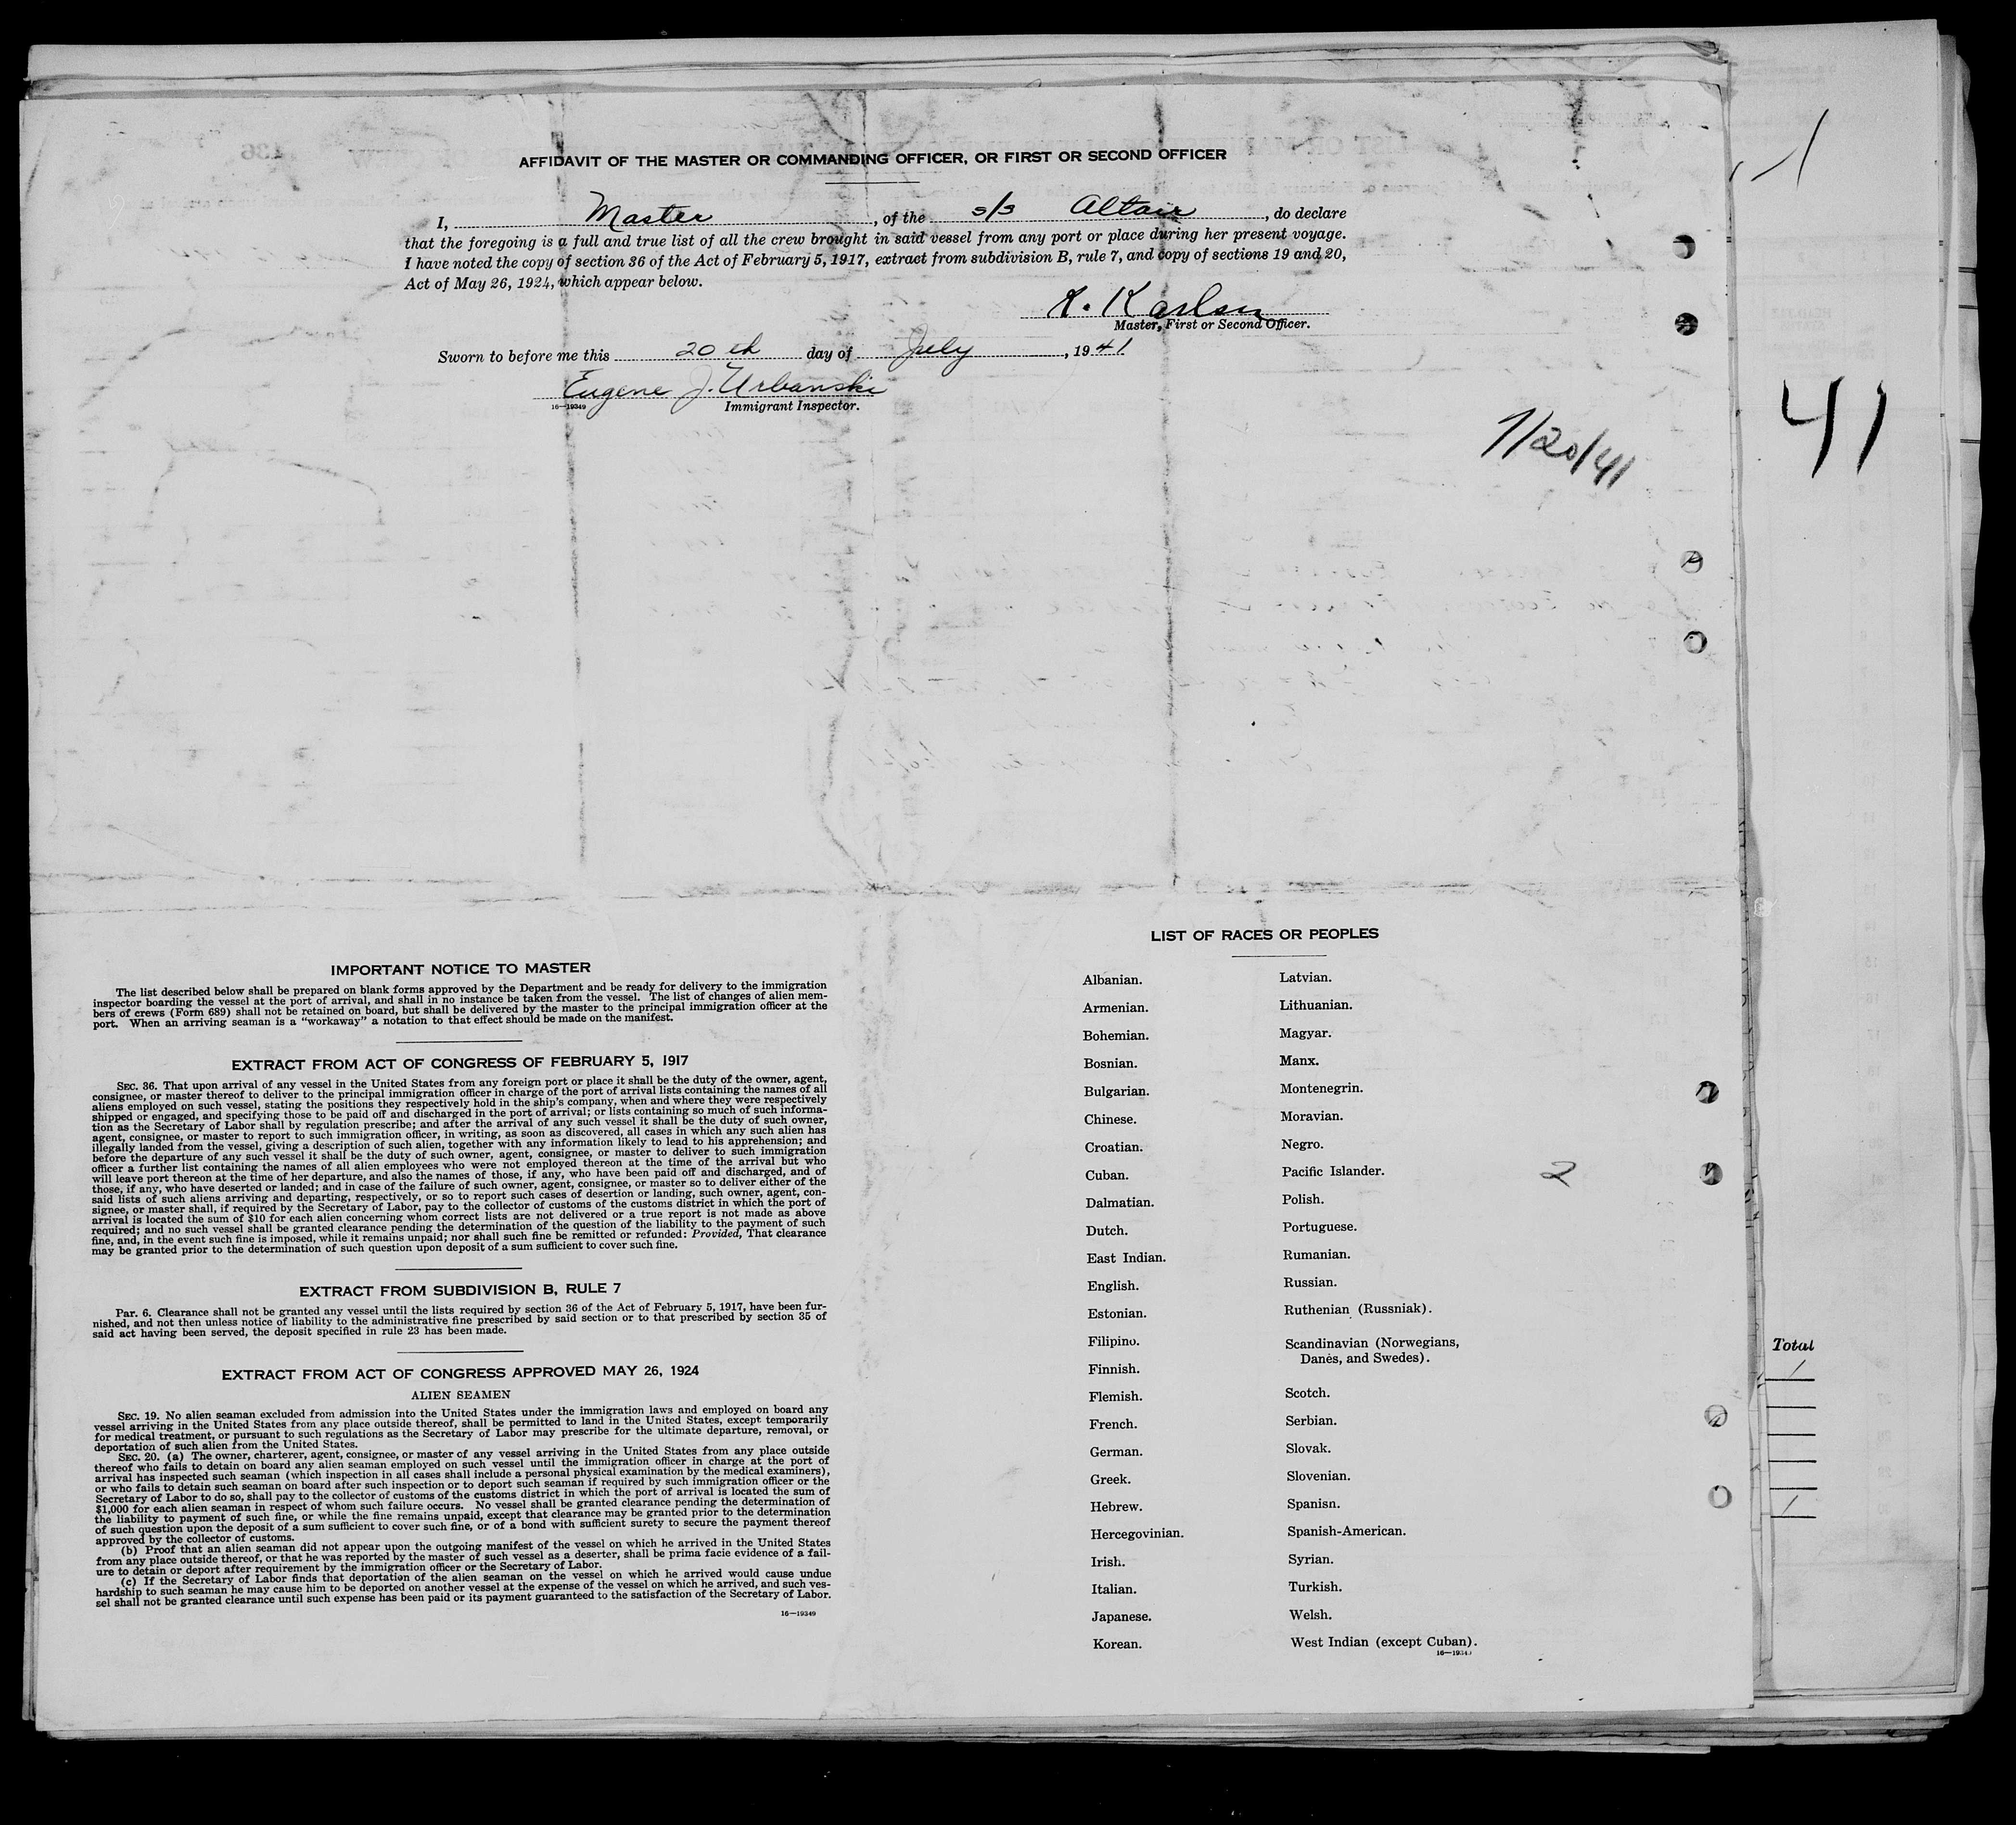 AFFIDAVIT OF THE MASTER OR COMMANDING OFFICER, OR FIRST OR SECOND OFFICER
I, Master, of the s/s Altair, do declare
that the foregoing is a full and true list of all the crew brought in said vessel from any port or place during her present voyage.
I have noted the copy of section 36 of the Act of February 5, 1917, extract from subdivision B, rule 7, and copy of sections 19 and 20,
Act of May 26, 1924, which appear below.
Karlsen
Master, First or Second Officer.
Sworn to before me this 20th day of July, 1941
Eugene J. Urbanski
16—19349 Immigrant Inspector.
7/20/41
41
IMPORTANT NOTICE TO MASTER
The list described below shall be prepared on blank forms approved by the Department and be ready for delivery to the immigration
inspector boarding the vessel at the port of arrival, and shall in no instance be taken from the vessel. The list of changes of alien mem-
bers of crews (Form 689) shall not be retained on board, but shall be delivered by the master to the principal immigration officer at the
port. When an arriving seaman is a "workaway" a notation to that effect should be made on the manifest.
EXTRACT FROM ACT OF CONGRESS OF FEBRUARY 5, 1917
SEC. 36. That upon arrival of any vessel in the United States from any foreign port or place it shall be the duty of the owner, agent,
consignee, or master thereof to deliver to the principal immigration officer in charge of the port of arrival lists containing the names of all
aliens employed on such vessel, stating the positions they respectively hold in the ship's company, when and where they were respectively
shipped or engaged, and specifying those to be paid off and discharged in the port of arrival; or lists containing so much of such informa-
tion as the Secretary of Labor shall by regulation prescribe; and after the arrival of any such vessel it shall be the duty of such owner,
agent, consignee, or master to report to such immigration officer, in writing, as soon as discovered, all cases in which any such alien has
illegally landed from the vessel, giving a description of such alien, together with any information likely to lead to his apprehension; and
before the departure of any such vessel it shall be the duty of such owner, agent, consignee, or master to deliver to such immigration
officer a further list containing the names of all alien employees who were not employed thereon at the time of the arrival but who
will leave port thereon at the time of her departure, and also the names of those, if any, who have been paid off and discharged, and of
those, if any, who have deserted or landed; and in case of the failure of such owner, agent, consignee, or master so to deliver either of the
said lists of such aliens arriving and departing, respectively, or so to report such cases of desertion or landing, such owner, agent, con-
signee, or master shall, if required by the Secretary of Labor, pay to the collector of customs of the customs district in which the port of
arrival is located the sum of $10 for each alien concerning whom correct lists are not delivered or a true report is not made as above
required; and no such vessel shall be granted clearance pending the determination of the question of the liability to the payment of such
fine, and, in the event such fine is imposed, while it remains unpaid; nor shall such fine be remitted or refunded: Provided, That clearance
may be granted prior to the determination of such question upon deposit of a sum sufficient to cover such fine.
EXTRACT FROM SUBDIVISION B, RULE 7
Par. 6. Clearance shall not be granted any vessel until the lists required by section 36 of the Act of February 5, 1917, have been fur-
nished, and not then unless notice of liability to the administrative fine prescribed by said section or to that prescribed by section 35 of
said act having been served, the deposit specified in rule 23 has been made.
EXTRACT FROM ACT OF CONGRESS APPROVED MAY 26, 1924
ALIEN SEAMEN
SEC. 19. No alien seaman excluded from admission into the United States under the immigration laws and employed on board any
vessel arriving in the United States from any place outside thereof, shall be permitted to land in the United States, except temporarily
for medical treatment, or pursuant to such regulations as the Secretary of Labor may prescribe for the ultimate departure, removal, or
deportation of such alien from the United States.
SEC. 20. (a) The owner, charterer, agent, consignee, or master of any vessel arriving in the United States from any place outside
thereof who fails to detain on board any alien seaman employed on such vessel until the immigration officer in charge at the port of
arrival has inspected such seaman (which inspection in all cases shall include a personal physical examination by the medical examiners),
or who fails to detain such seaman on board after such inspection or to deport such seaman if required by such immigration officer or the
Secretary of Labor to do so, shall pay to the collector of customs of the customs district in which the port of arrival is located the sum of
$1,000 for each alien seaman in respect of whom such failure occurs. No vessel shall be granted clearance pending the determination of
the liability to payment of such fine, or while the fine remains unpaid, except that clearance may be granted prior to the determination
of such question upon the deposit of a sum sufficient to cover such fine, or of a bond with sufficient surety to secure the payment thereof
approved by the collector of customs.
(b) Proof that an alien seaman did not appear upon the outgoing manifest of the vessel on which he arrived in the United States
from any place outside thereof, or that he was reported by the master of such vessel as a deserter, shall be prima facie evidence of a fail-
ure to detain or deport after requirement by the immigration officer or the Secretary of Labor.
(c) If the Secretary of Labor finds that deportation of the alien seaman on the vessel on which he arrived would cause undue
hardship to such seaman he may cause him to be deported on another vessel at the expense of the vessel on which he arrived, and such ves-
sel shall not be granted clearance until such expense has been paid or its payment guaranteed to the satisfaction of the Secretary of Labor.
16—19349
LIST OF RACES OR PEOPLES
Albanian.
Armenian.
Bohemian.
Bosnian.
Bulgarian.
Chinese.
Croatian.
Cuban.
Dalmatian.
Dutch.
East Indian.
English.
Estonian.
Filipino.
Finnish.
Flemish.
French.
German.
Greek.
Hebrew.
Hercegovinian.
Irish.
Italian.
Japanese.
Korean.
Latvian.
Lithuanian.
Magyar.
Manx.
Montenegrin.
Moravian.
Negro.
Pacific Islander.
Polish.
Portuguese.
Rumanian.
Russian.
Ruthenian (Russniak).
Scandinavian (Norwegians,
Danes, and Swedes).
Scotch.
Serbian.
Slovak.
Slovenian.
Spanish.
Spanish-American.
Syrian.
Turkish.
Welsh.
West Indian (except Cuban).
16—19349
2
Total